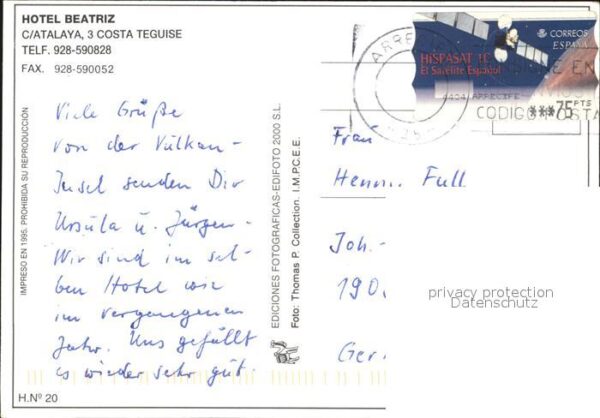 HOTEL BEATRIZ
C/ATALAYA, 3 COSTA TEGUISE
TELF. 928-590828
FAX. 928-590052
Viele Grüße
von der Vulkan-
Insel senden Dir
Ursula u. Jürgen.
Wir sind im sel-
ben Hotel wie
im vergangenen
Jahr. Uns gefällt
es wieder sehr gut.
H.Nº 20
IMPRESO EN 1995. PROHIBIDA SU REPRODUCCION
EDICIONES FOTOGRAFICAS-EDIFOTO 2000 S.L.
Foto: Thomas P. Collection. I.M.P.C.E.E.
CORREOS
ESPAÑA
HISPASAT 1C
El Satélite Español
***75 PTS
ARRECIFE
CODIGO POSTA
Frau
Full
Joh.-
190
Ger
privacy protection
Datenschutz